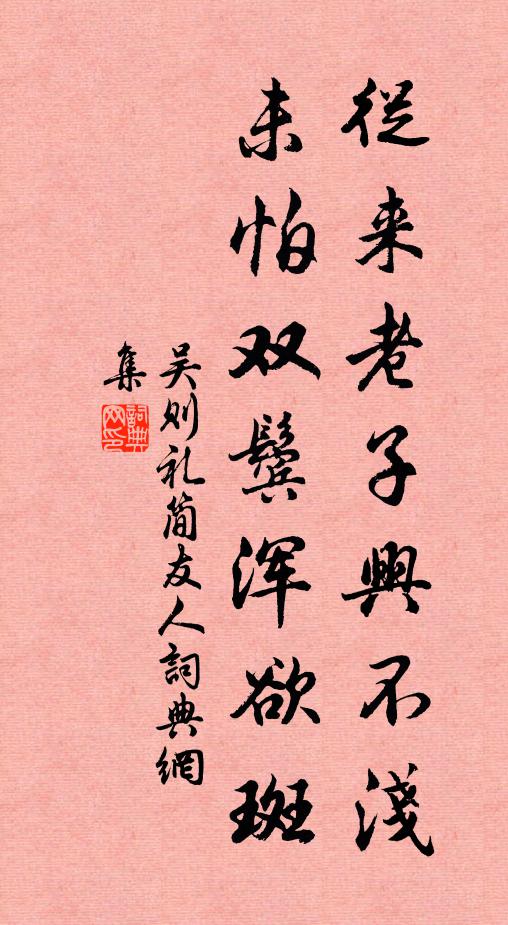 從来老子興不淺
未怕双鬓浑欲斑
吴则礼简友人詞典網
集
詞典網印